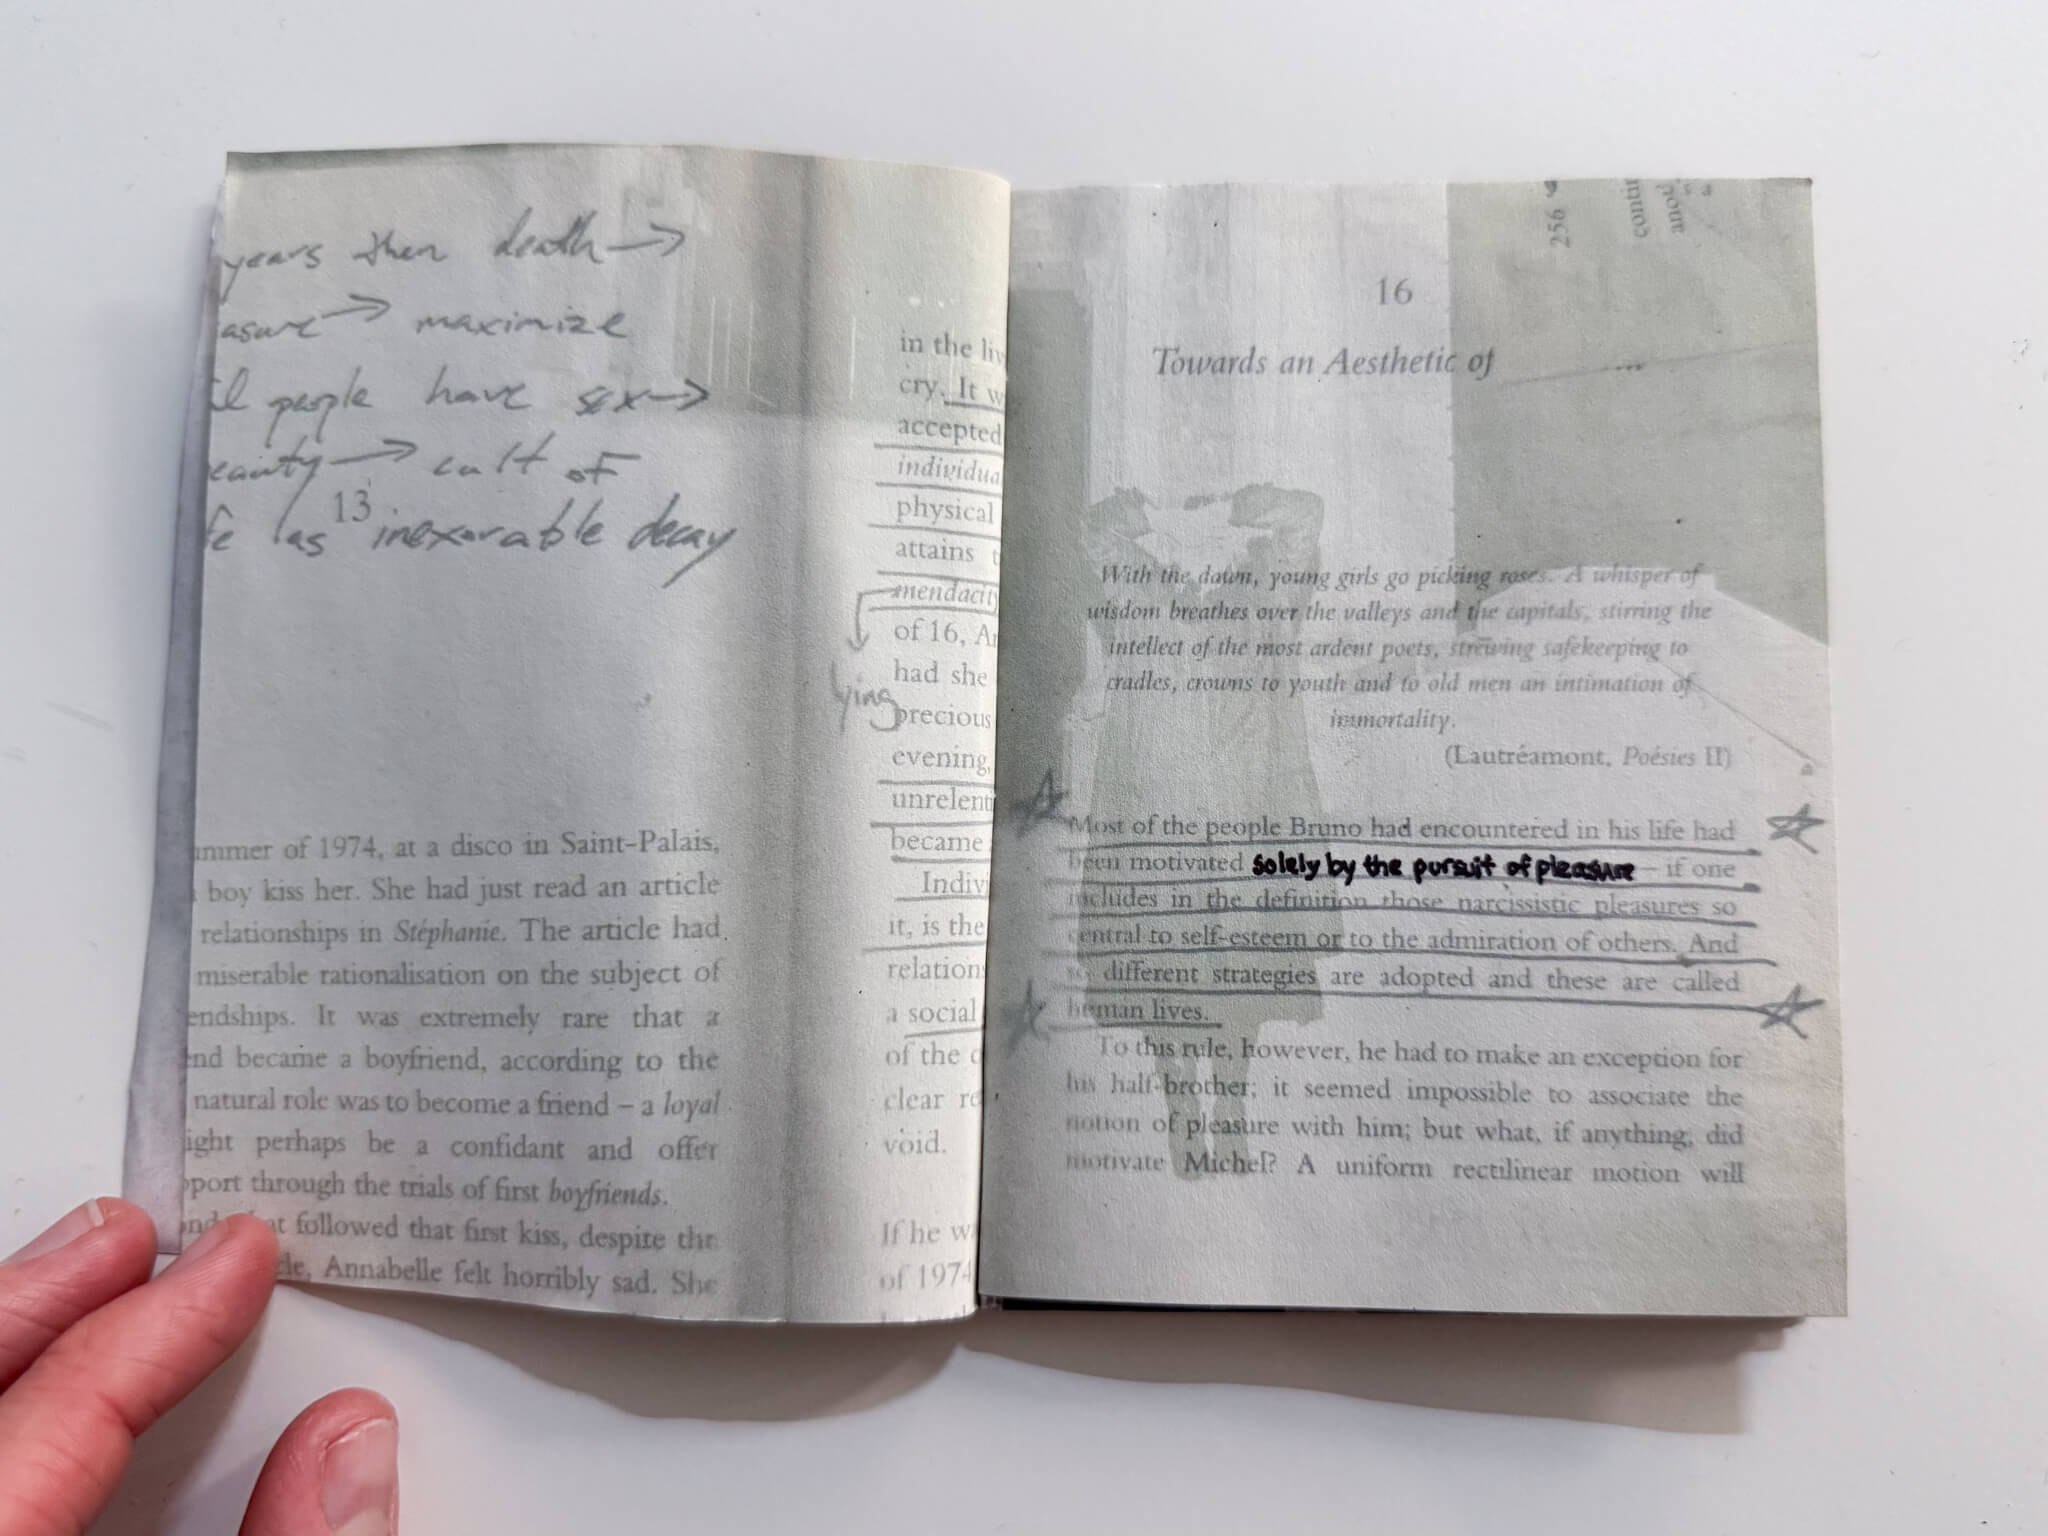 years then death →
asure → maximize
people have sex →
eauty → cult of
fe as inexorable decay
13
ummer of 1974, at a disco in Saint-Palais,
boy kiss her. She had just read an article
relationships in Stéphanie. The article had
miserable rationalisation on the subject of
endships. It was extremely rare that a
end became a boyfriend, according to the
natural role was to become a friend – a loyal
ight perhaps be a confidant and offer
pport through the trials of first boyfriends.
that followed that first kiss, despite the
Annabelle felt horribly sad. She
in the liv
cry. It w
accepted
individua
physical
attains t
mendacity
of 16, An
had she
lying
precious
evening,
unrelenti
became
Indivi
it, is the
relations
a social
of the c
clear re
void.
If he wa
of 1974
256
contin
anot
16
Towards an Aesthetic of
...
With the dawn, young girls go picking roses. A whisper of
wisdom breathes over the valleys and the capitals, stirring the
intellect of the most ardent poets, strewing safekeeping to
cradles, crowns to youth and to old men an intimation of
immortality.
(Lautréamont, Poésies II)
Most of the people Bruno had encountered in his life had
been motivated solely by the pursuit of pleasure – if one
includes in the definition those narcissistic pleasures so
central to self-esteem or to the admiration of others. And
so different strategies are adopted and these are called
human lives.
To this rule, however, he had to make an exception for
his half-brother; it seemed impossible to associate the
notion of pleasure with him; but what, if anything, did
motivate Michel? A uniform rectilinear motion will